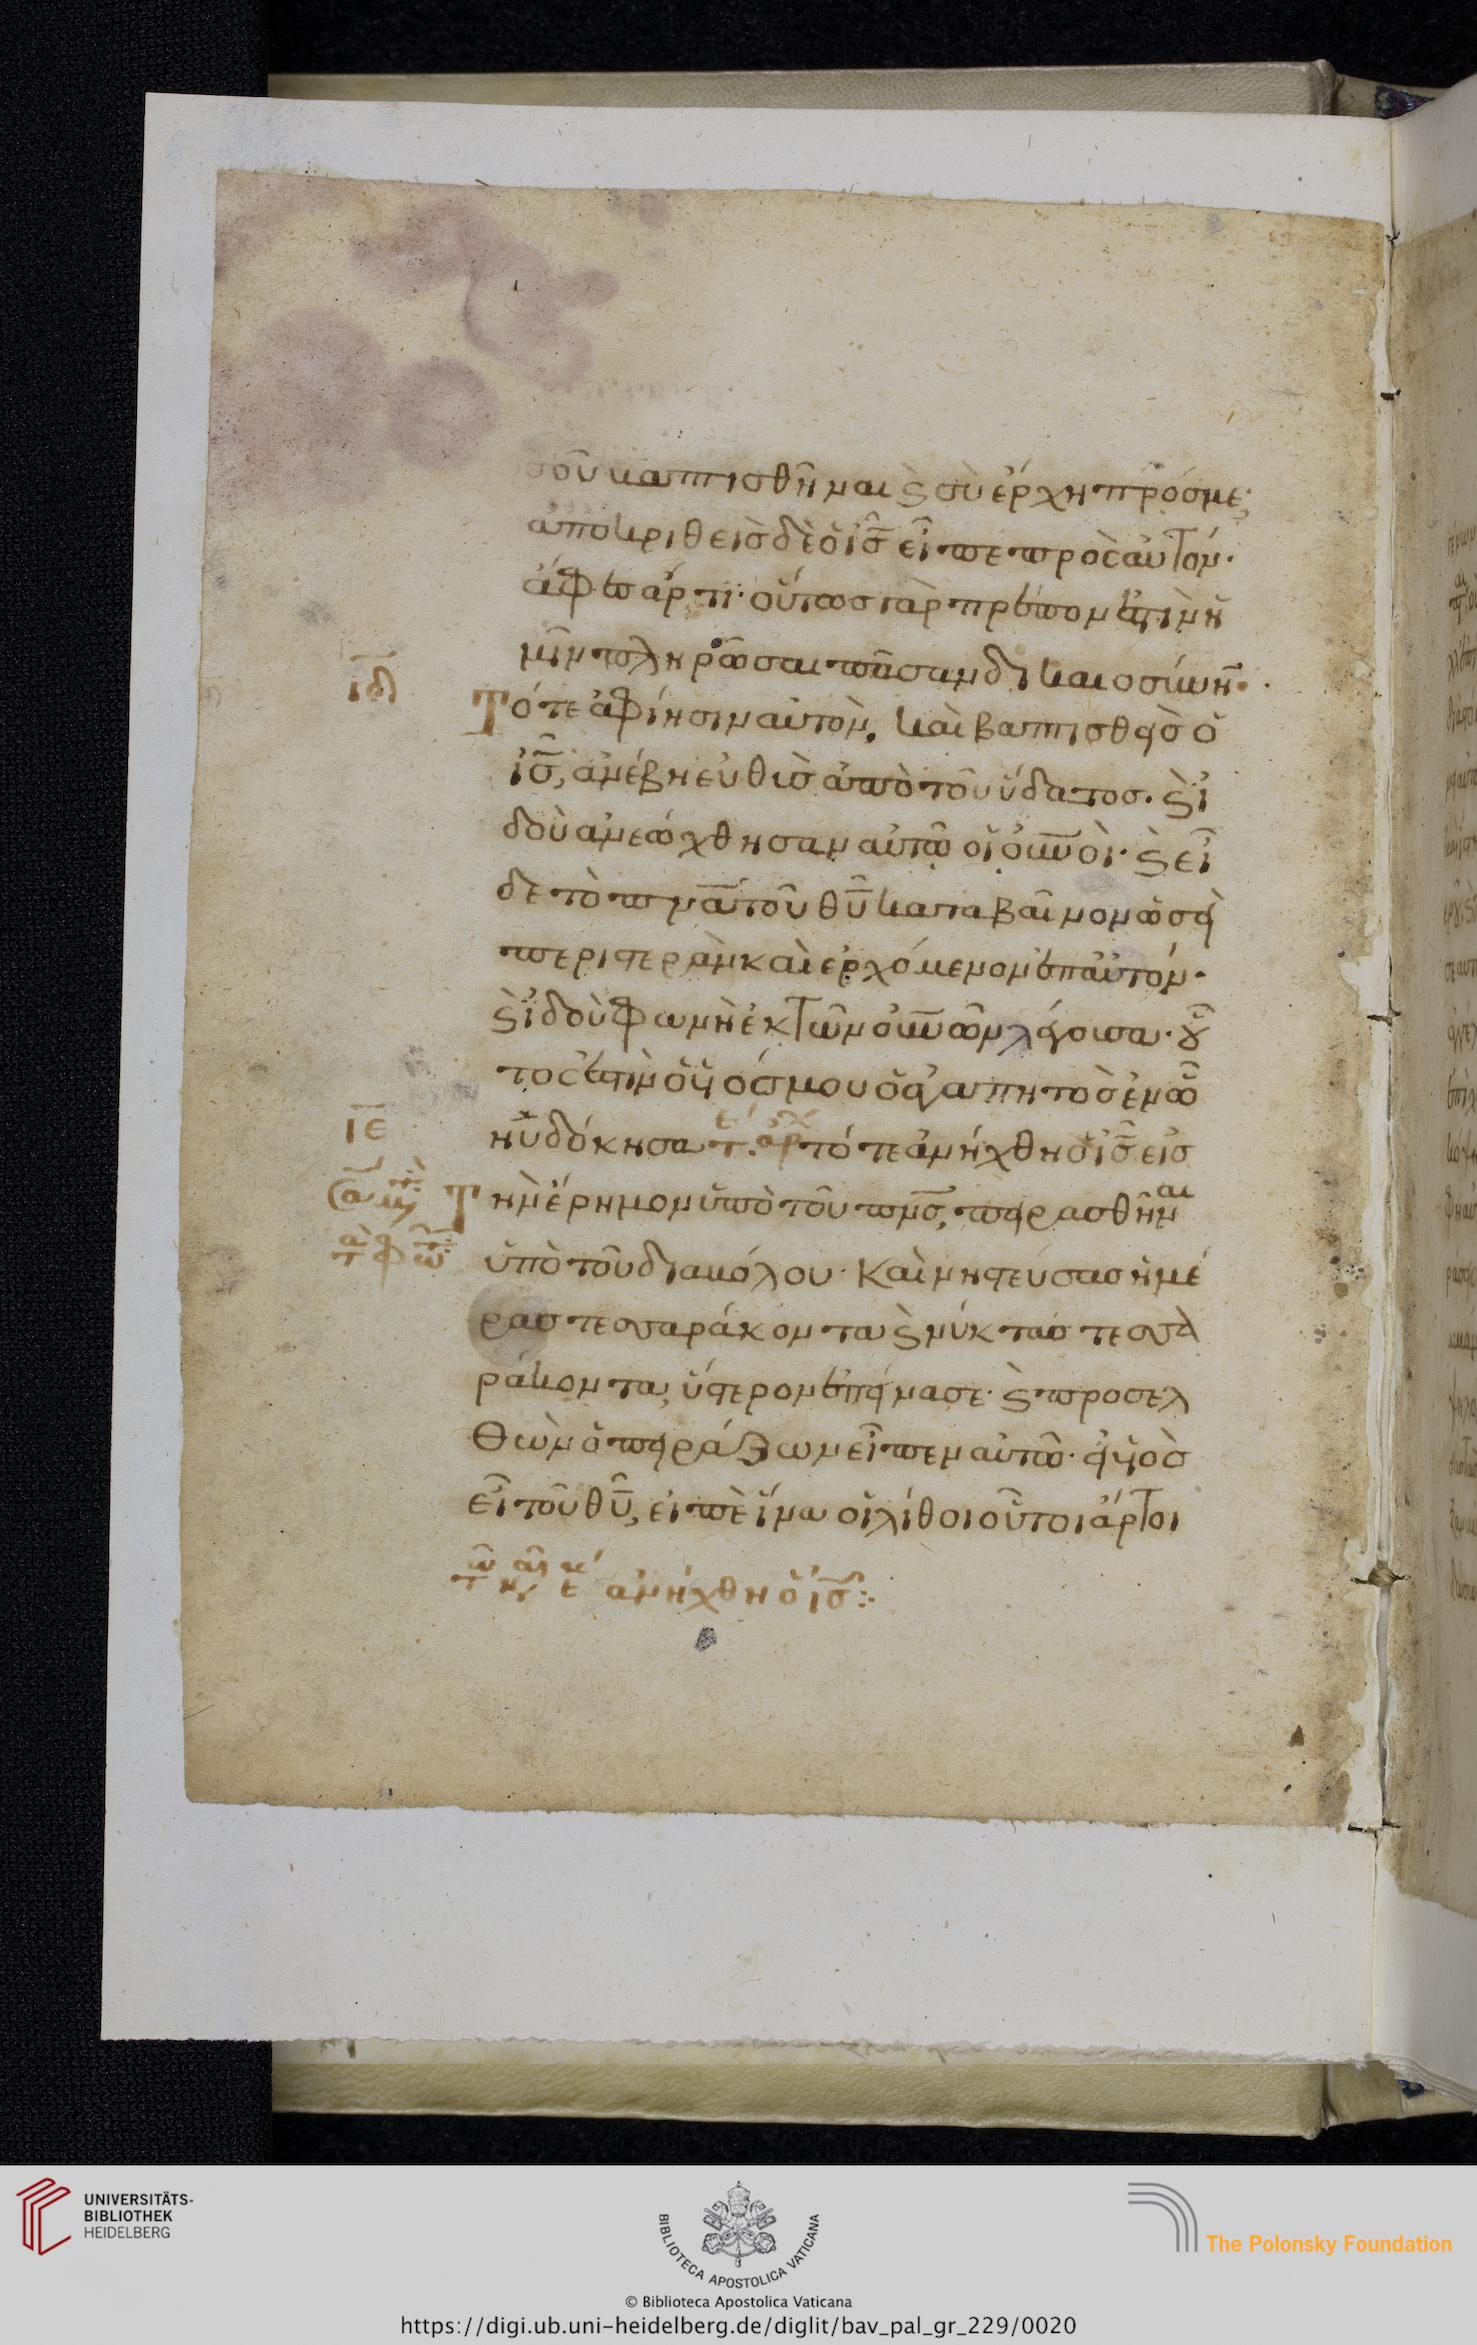 σοῦ βαπτισθῆναι ϗ σὺ ἔρχη πρόσ με;
ἀποκριθεὶσ δὲ ὁ ἰ̅σ̅ εἶπε πρὸς αὐτόν·
ἄφες ἄρτι· οὕτωσ γὰρ πρέπον ἐστὶν ἡ
μῖν πληρῶσαι πᾶσαν δικαιοσύνην·
ι̅δ̅ Τότε ἀφίησιν αὐτὸν. καὶ βαπτισθεὶσ ὁ
ἰ̅σ̅, ἀνέβη εὐθὺσ ἀπὸ τοῦ ὕδατοσ. ϗ ἰ
δοὺ ἀνεώχθησαν αὐτῶ οἱ ο̅υ̅ν̅οὶ· ϗ εἶ
δε τὸ π̅ν̅α̅ τοῦ θ̅υ̅ καταβαῖνον ὡσεὶ
περιστερὰν καὶ ἐρχόμενον ἐπ αὐτόν·
ϗ ἰδοὺ φωνὴ ἐκ τῶν ο̅υ̅ν̅ῶν λέγουσα· οὗ
τος ἐστὶν ὁ υἱός μου ὁ ἀγαπητὸσ ἐν ὧ
ι̅ε̅ ηὐδόκησα τε ἀρχ τότε ἀνήχθη ὁ ἰ̅σ̅ εἰσ
Τὴν ἔρημον ὑπὸ τοῦ π̅ν̅σ̅, πειρασθῆναι
ὑπὸ τοῦ διαβόλου· Καὶ νηστεύσασ ἡμέ
ρασ τεσσαράκοντα ϗ νύκτασ τεσσα
ράκοντα, ὕστερον ἐπείνασε· ϗ προσελ
θὼν ὁ πειράζων εἶπεν αὐτῶ· εἰ υἱὸσ
εἶ τοῦ θ̅υ̅, εἰπὲ ἵνα οἱ λίθοι οὗτοι ἄρτοι
ἀνήχθη ὁ ἰ̅σ̅:
UNIVERSITÄTS-
BIBLIOTHEK
HEIDELBERG
BIBLIOTECA APOSTOLICA VATICANA
The Polonsky Foundation
© Biblioteca Apostolica Vaticana
https://digi.ub.uni-heidelberg.de/diglit/bav_pal_gr_229/0020